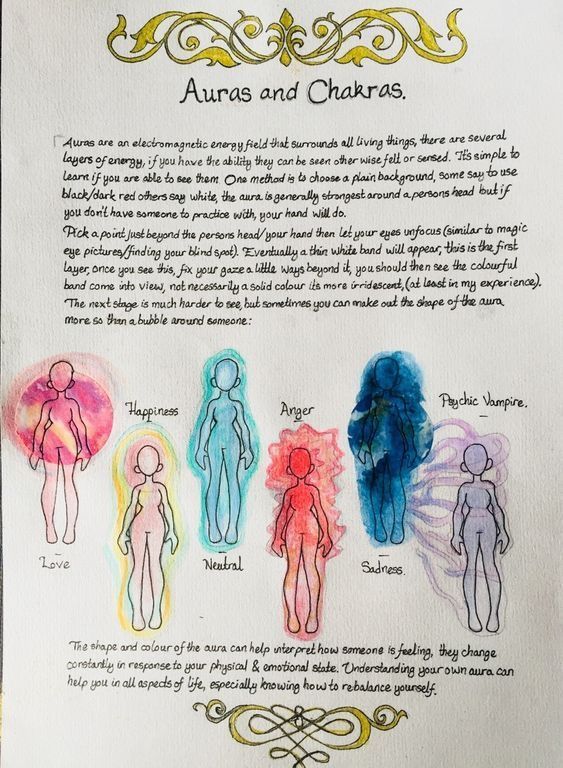 Auras and Chakras.
Auras are an electromagnetic energy field that surrounds all living things, there are several
layers of energy, if you have the ability they can be seen other wise felt or sensed. It's simple to
learn if you are able to see them. One method is to choose a plain background, some say to use
black/dark red others say white, the aura is generally strongest around a persons head but if
you don't have someone to practice with, your hand will do.
Pick a point just beyond the persons head/your hand then let your eyes unfocus (similar to magic
eye pictures/finding your blind spot). Eventually a thin white band will appear, this is the first
layer, once you see this, fix your gaze a little ways beyond it, you should then see the colourful
band come into view, not necessarily a solid colour its more irridescent, (at least in my experience).
The next stage is much harder to see, but sometimes you can make out the shape of the aura
more so than a bubble around someone:
Love
Happiness
Neutral
Anger
Sadness.
Psychic Vampire.
The shape and colour of the aura can help interpret how someone is feeling, they change
constantly in response to your physical & emotional state. Understanding your own aura can
help you in all aspects of life, especially knowing how to rebalance yourself.